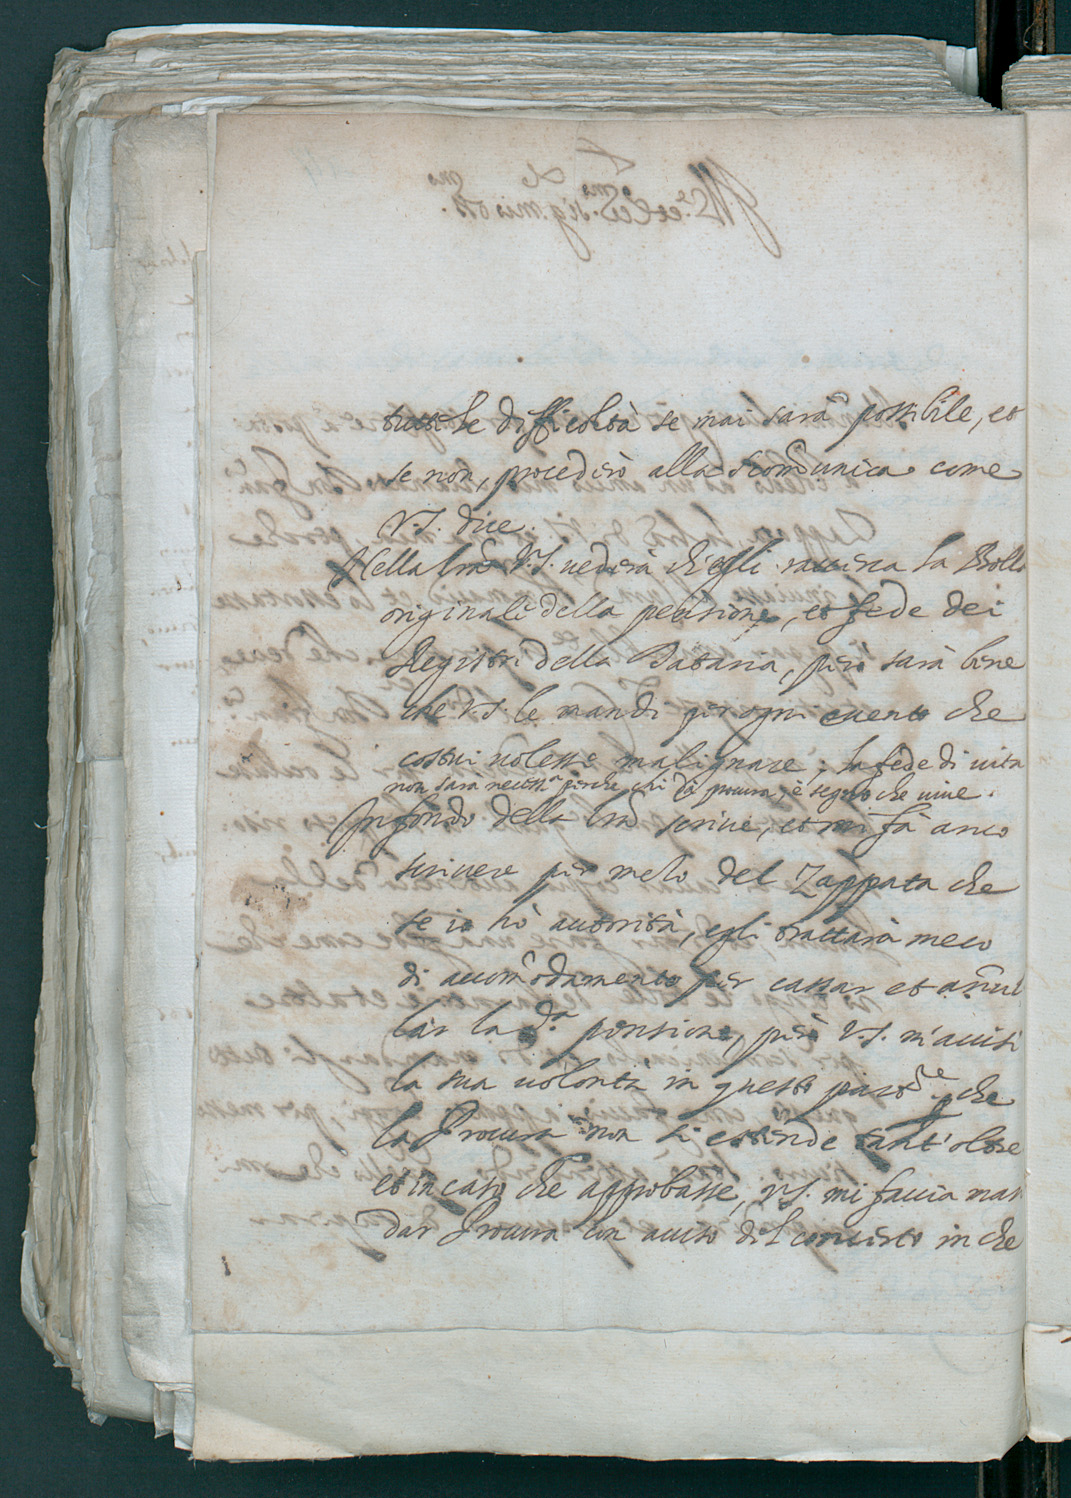 tutte le difficoltà se mai sarà possibile, et
se non, procederò alla scom̃unica come
V.S. dice.
Nella lr̃a V.S. vederà ch'egli ricerca la Bolla
originale della pensione, et fede dei
Registri della Dataria, però sarà bene
che V.S. le mandi per ogni evento che
costui volesse malignare; la fede di vita
non sarà necess.ᵃ perche chi dà procura, è segno che vive.
In fondo della lr̃a scrive, et mi fà anco
scrivere per mezo del Zappata che
se io hò autorità, egli trattarà meco
di accom̃odamento per cassar et an̄ul
lar la d.ᵃ pensione, però V.S. m'avisi
la sua volontà in questo part.ʳᵉ che
la Procura non si estende tant'oltre
et in caso che approbasse, V.S. mi faccia man
dar Procura con aviso del concerto in che